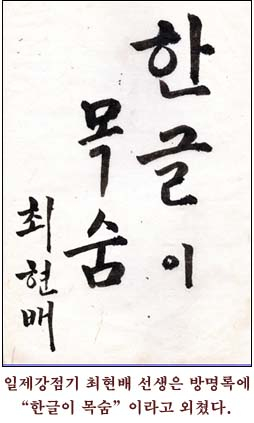 한글이
목숨
최현배
일제강점기 최현배 선생은 방명록에
“한글이 목숨” 이라고 외쳤다.